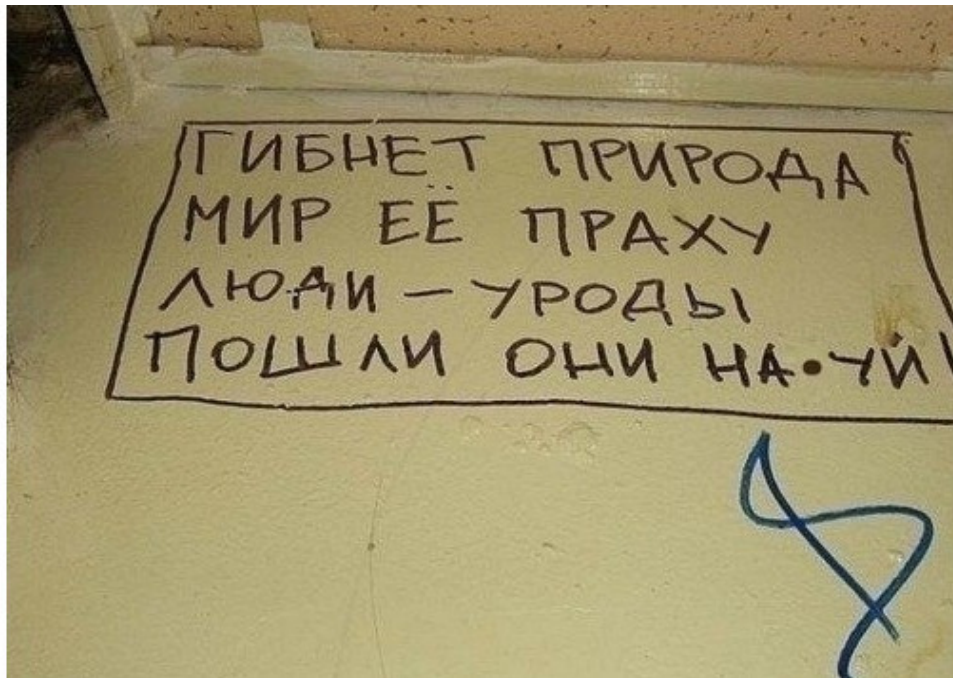 ГИБНЕТ ПРИРОДА
МИР ЕЁ ПРАХУ
ЛЮДИ – УРОДЫ
ПОШЛИ ОНИ НА•УЙ